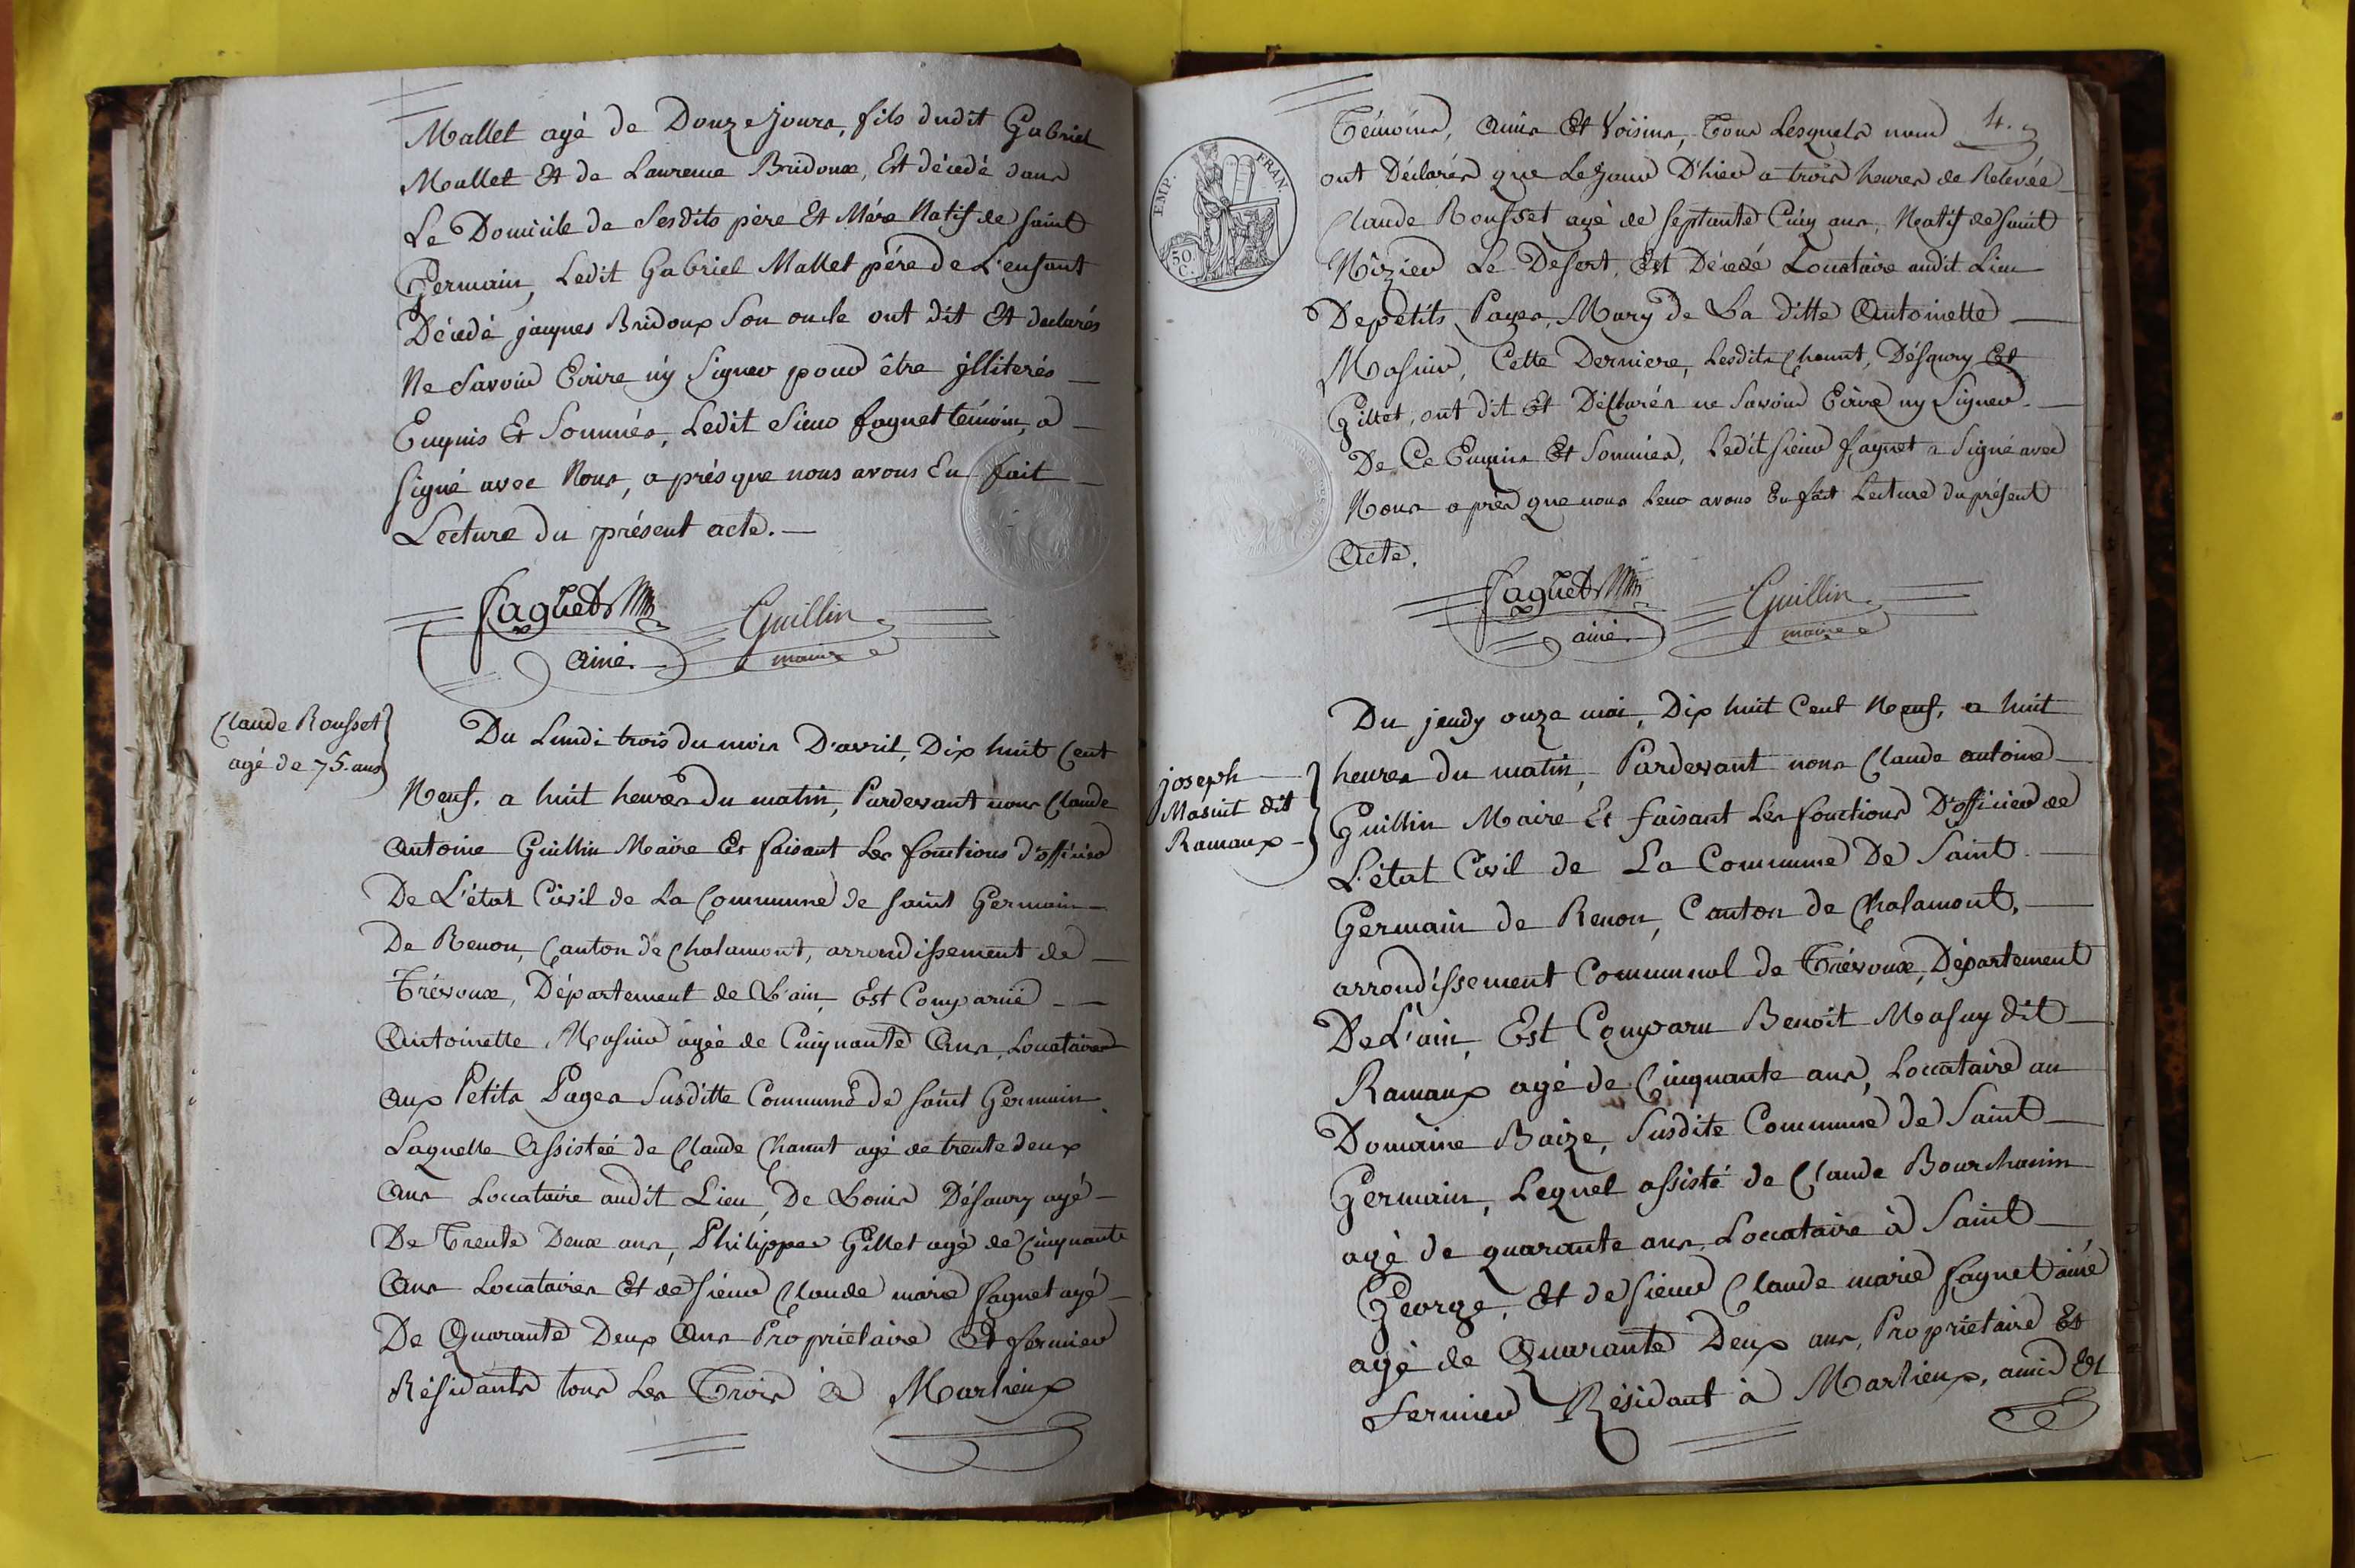 Mallet agé de Douze jours, fils dudit Gabriel
Mallet Et de Laurence Bridoux, Est décédé dans
Le Domicile de Sesdits père Et Mére Natif de saint
Germain, Ledit Gabriel Mallet pére de L'enfant
Décedé jacques Bridoux Son oncle ont dit Et declarés
Ne Savoir Ecrire ny Signer pour être jlliterés
Enquis Et Sommés, Ledit Sieur faguet témoin, a
Signé avec Nous, aprés que nous avons Eu fait
Lecture du présent acte.
faguet Guillin
ainé. maire
Claude Rousset
agé de 75. ans
Du Lundi trois du mois D'avril, Dix huit Cent
Neuf. a huit heures du matin, Pardevant nous Claude
antoine Guillin Maire Et faisant Les fonctions d'officier
De L'état Civil de La Commune de saint Germain
De Renon, Canton de Chalamont, arrondissement de
Trévoux, Département de L'ain, Est Comparüe
Antoinette Masuir agée de Cinquante Ans, Locataire
aux Petits Pages Susditte Commune de saint Germain
Laquelle Assistée de Claude Chanut agé de trente deux
Ans Locataire audit Lieu, De Louis Désaury agé
De Trente Deux ans, Philippes Gillet agé de Cinquante
Ans Locataires Et de sieur Claude marie faguet agé
De Quarante Deux Ans Propriétaire Et fermier
Résidants tous Les Trois à Marlieux
4.
Témoins, Amis Et Voisins, Tous Lesquels nous
ont Déclarés que Le jour D'hier a trois heures de Relevée
Claude Rousset agé de septante Cinq ans, Natif de saint
Nizier Le Desert, Est Décedé Locataire audit Lieu
De petits Pages, Mary de La ditte Antoinette
Masuir, Cette Derniere, Lesdits Chanut, Désaury Et
Gillet, ont dit Et Déclarés ne Savoir Ecrire ny Signer.
De Ce Enquis Et Sommés, Ledit sieur faguet a Signé avec
Nous aprés que nous Leur avons Eu fait Lecture du présent
Acte.
EMP. FRAN.
50 C.
faguet Guillin
ainé. maire
joseph
Masuit dit
Ramaux
Du jeudy onze mai, Dix huit Cent Neuf, a huit
heures du matin, Pardevant nous Claude antoine
Guillin Maire Et faisant Les fonctions D'officier de
L'état Civil de La Commune De Saint
Germain de Renon, Canton de Chalamont,
arrondissement Communal de Trévoux, Département
De L'ain, Est Comparu Benoit Masuy dit
Ramaux agé de Cinquante ans, Locataire au
Domaine Baize, Susdite Commune de Saint
Germain, Lequel assisté de Claude Bourchanin
agé de quarante ans, Locataire à Saint
George, Et de sieur Claude marie faguet ainé
agé de Quarante Deux ans, Propriétaire Et
fermier Résidant à Marlieux, amis Et